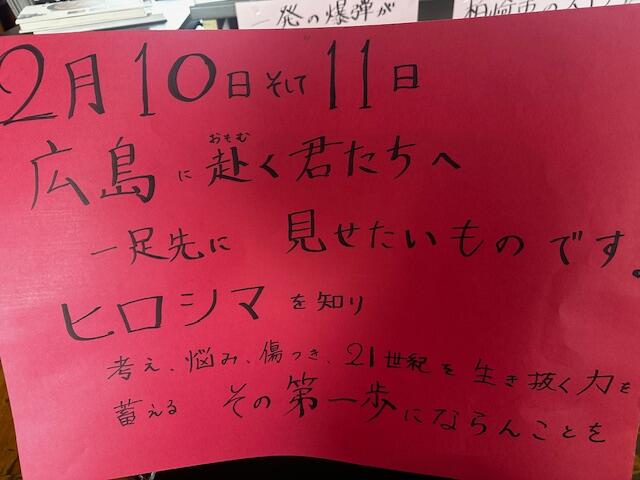 発の爆弾が
柏崎市の
2月10日そして11日
おもむ
広島に赴く君たちへ
一足先に 見せたいものです。
ヒロシマを知り
考え、悩み、傷つき、21世紀を生き抜く力を
蓄える その第一歩にならんことを